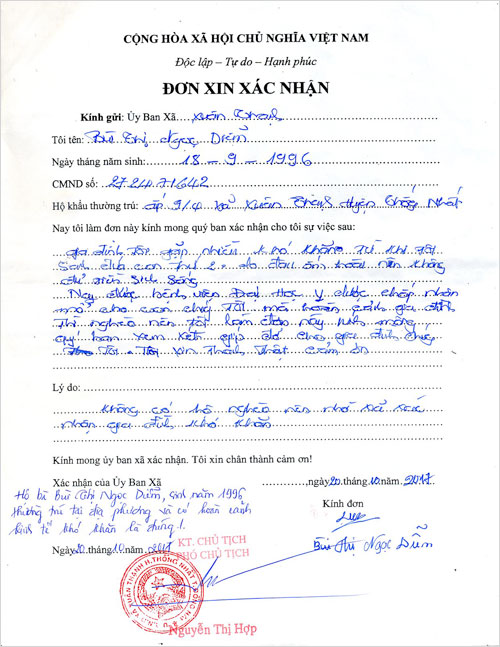 CỘNG HÒA XÃ HỘI CHỦ NGHĨA VIỆT NAM
Độc lập – Tự do – Hạnh phúc
ĐƠN XIN XÁC NHẬN
Kính gửi: Ủy Ban Xã Xuân Thạnh
Tôi tên: Bùi Thị Ngọc Diễm
Ngày tháng năm sinh: 18 - 9 - 1996
CMND số: 272471642
Hộ khẩu thường trú: ấp 9/4 xã Xuân Thạnh Huyện Thống Nhất
Nay tôi làm đơn này kính mong quý ban xác nhận cho tôi sự việc sau:
gia đình tôi gặp nhiều khó khăn Từ khi tôi
Sanh đứa con thứ 2 do đau ốm hoài nên không
đủ tiền sinh sống
Nay được bệnh viện Đại Học y dược chấp nhận
mổ cho con cháu Tôi mà hoàn cảnh gia đình
Thì nghèo nên tôi làm đơn này kính mong
quý ban xem xét giúp đỡ cho gia đình chúng
Tôi. Tôi Xin Thành Thật cảm ơn
Lý do:
không có hộ nghèo nên nhờ xã xác
nhận gia đình khó khăn
Kính mong ủy ban xã xác nhận. Tôi xin chân thành cảm ơn!
Xác nhận của Ủy Ban Xã
,ngày 20 .tháng 10 .năm 2017
Hộ bà Bùi Thị Ngọc Diễm, sinh năm 1996
thường trú tại địa phương và có hoàn cảnh
kinh tế khó khăn là đúng!
Kính đơn
Ngày 20 .tháng 10 .năm 2017
KT. CHỦ TỊCH
PHÓ CHỦ TỊCH
Bùi Thị Ngọc Diễm
Nguyễn Thị Hợp